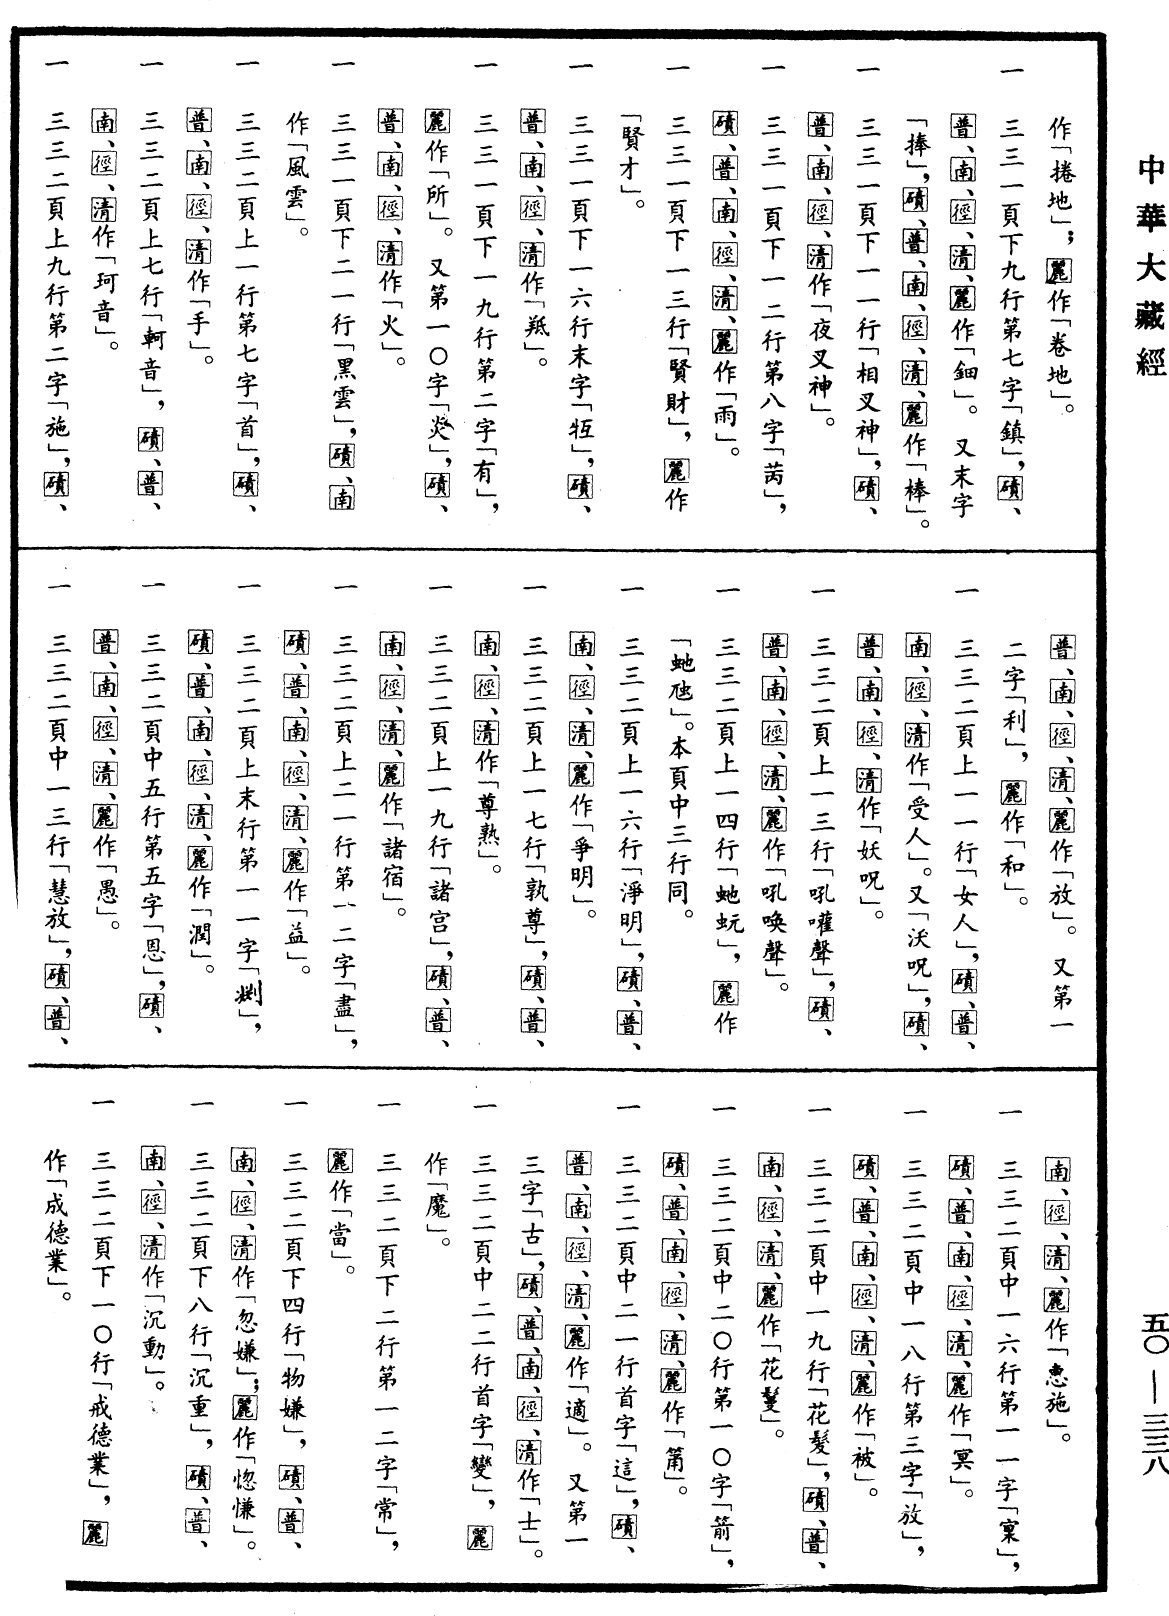 中華大藏經
五〇—三三八
作「捲地」；麗作「卷地」。
一 三三一頁下九行第七字「鎮」，磧、
普、南、徑、清、麗作「鈿」。又末字
「捧」，磧、普、南、徑、清、麗作「棒」。
一 三三一頁下一一行「相叉神」，磧、
普、南、徑、清作「夜叉神」。
一 三三一頁下一二行第八字「苪」，
磧、普、南、徑、清、麗作「雨」。
一 三三一頁下一三行「賢財」，麗作
「賢才」。
一 三三一頁下一六行末字「𤙖」，磧、
普、南、徑、清作「羝」。
一 三三一頁下一九行第二字「有」，
麗作「所」。又第一〇字「災」，磧、
普、南、徑、清作「火」。
一 三三一頁下二一行「黑雲」，磧、南
作「風雲」。
一 三三二頁上一行第七字「首」，磧、
普、南、徑、清作「手」。
一 三三二頁上七行「軻音」，磧、普、
南、徑、清作「珂音」。
一 三三二頁上九行第二字「施」，磧、
普、南、徑、清、麗作「放」。又第一
二字「利」，麗作「和」。
一 三三二頁上一一行「女人」，磧、普、
南、徑、清作「受人」。又「沃呪」，磧、
普、南、徑、清作「妖呪」。
一 三三二頁上一三行「吼嚾聲」，磧、
普、南、徑、清、麗作「吼喚聲」。
一 三三二頁上一四行「虵蚖」，麗作
「虵虺」。本頁中三行同。
一 三三二頁上一六行「淨明」，磧、普、
南、徑、清、麗作「爭明」。
一 三三二頁上一七行「孰尊」，磧、普、
南、徑、清作「尊熟」。
一 三三二頁上一九行「諸宮」，磧、普、
南、徑、清、麗作「諸宿」。
一 三三二頁上二一行第一二字「盡」，
磧、普、南、徑、清、麗作「益」。
一 三三二頁上末行第一一字「」，
磧、普、南、徑、清、麗作「潤」。
一 三三二頁中五行第五字「恩」，磧、
普、南、徑、清、麗作「愚」。
一 三三二頁中一三行「慧放」，磧、普、
南、徑、清、麗作「惠施」。
一 三三二頁中一六行第一一字「稟」，
磧、普、南、徑、清、麗作「冥」。
一 三三二頁中一八行第三字「放」，
磧、普、南、徑、清、麗作「被」。
一 三三二頁中一九行「花髮」，磧、普、
南、徑、清、麗作「花鬘」。
一 三三二頁中二〇行第一〇字「箭」，
磧、普、南、徑、清、麗作「筩」。
一 三三二頁中二一行首字「這」，磧、
普、南、徑、清、麗作「適」。又第一
三字「古」，磧、普、南、徑、清作「士」。
一 三三二頁中二二行首字「變」，麗
作「魔」。
一 三三二頁下二行第一二字「常」，
麗作「當」。
一 三三二頁下四行「物嫌」，磧、普、
南、徑、清作「忽嫌」；麗作「惚慊」。
一 三三二頁下八行「沉重」，磧、普、
南、徑、清作「沉動」。
一 三三二頁下一〇行「戒德業」，麗
作「成德業」。